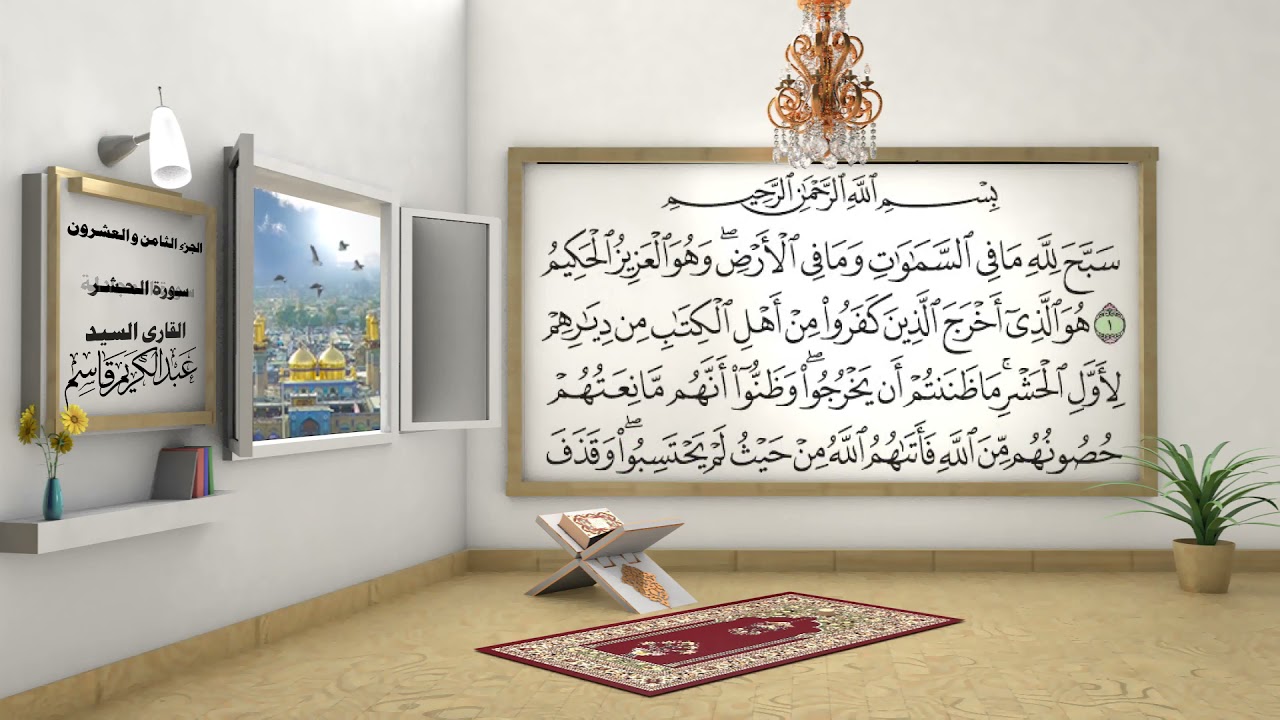 بِسْمِ ٱللَّهِ ٱلرَّحْمَٰنِ ٱلرَّحِيمِ
سَبَّحَ لِلَّهِ مَا فِى ٱلسَّمَٰوَٰتِ وَمَا فِى ٱلْأَرْضِ ۖ وَهُوَ ٱلْعَزِيزُ ٱلْحَكِيمُ
١ هُوَ ٱلَّذِىٓ أَخْرَجَ ٱلَّذِينَ كَفَرُوا۟ مِنْ أَهْلِ ٱلْكِتَٰبِ مِن دِيَٰرِهِمْ
لِأَوَّلِ ٱلْحَشْرِ ۚ مَا ظَنَنتُمْ أَن يَخْرُجُوا۟ ۖ وَظَنُّوٓا۟ أَنَّهُم مَّانِعَتُهُمْ
حُصُونُهُم مِّنَ ٱللَّهِ فَأَتَىٰهُمُ ٱللَّهُ مِنْ حَيْثُ لَمْ يَحْتَسِبُوا۟ ۖ وَقَذَفَ
الجزء الثامن والعشرون
سورة الحشر
القارئ السيد
عبدالكريم قاسم